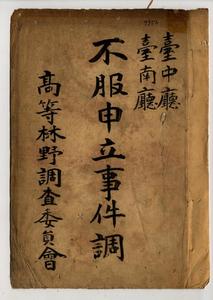 臺中廳
臺南廳
不服申立事件調
高等林野調査委員會